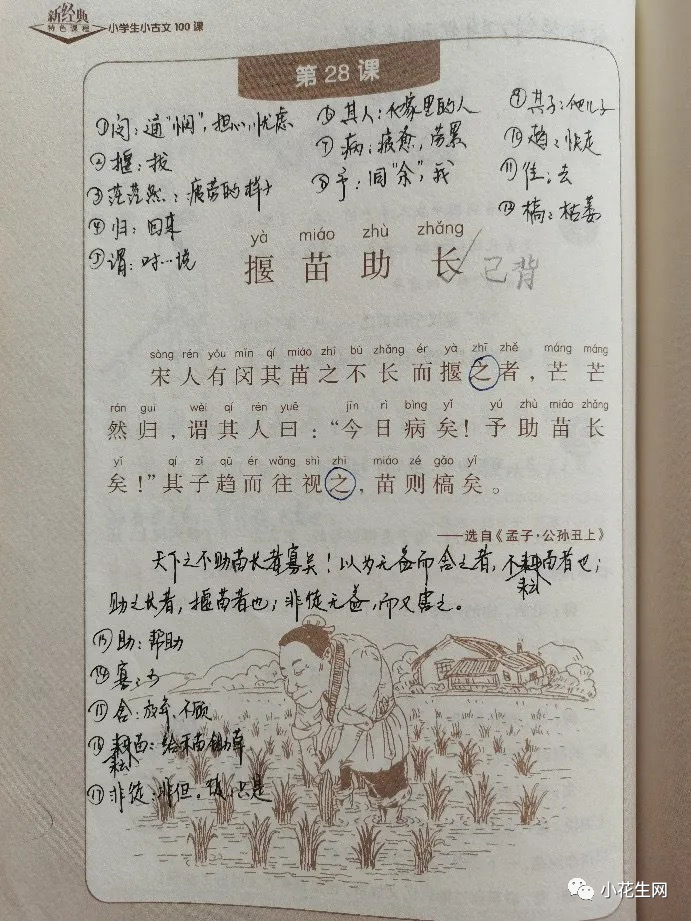 新经典
特色课程
小学生小古文100课
第28课
①闵：通“悯”，担心，忧虑
②揠：拔
③茫茫然：疲劳的样子
④归：回来
⑤谓：对…说
⑥其人：他家里的人
⑦病：疲惫，劳累
⑧予：同“余”，我
⑨其子：他儿子
⑩趋：快走
⑪往：去
⑫槁：枯萎
yà miáo zhù zhǎng
揠苗助长
已背
sòng rén yǒu mǐn qí miáo zhī bù zhǎng ér yà zhī zhě máng máng
宋人有闵其苗之不长而揠之者，芒芒
rán guī wèi qí rén yuē jīn rì bìng yǐ yú zhù miáo zhǎng
然归，谓其人曰：“今日病矣！予助苗长
yǐ qí zǐ qū ér wǎng shì zhī miáo zé gǎo yǐ
矣！”其子趋而往视之，苗则槁矣。
——选自《孟子·公孙丑上》
天下之不助苗长者寡矣！以为无益而舍之者，不耘苗者也；
助之长者，揠苗者也；非徒无益，而又害之。
⑬助：帮助
⑭寡：少
⑮舍：放弃、不顾
⑯耘苗：给禾苗锄草
⑰非徒：非但。徒，只是
小花生网